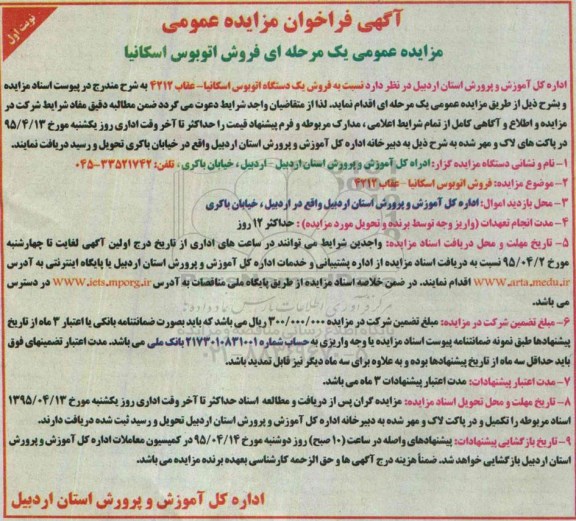 نوبت اول
آگهی فراخوان مزایده عمومی
مزایده عمومی یک مرحله ای فروش اتوبوس اسکانیا
اداره کل آموزش و پرورش استان اردبیل در نظر دارد نسبت به فروش یک دستگاه اتوبوس اسکانیا- عقاب ۴۲۱۲ به شرح مندرج در پیوست اسناد مزایده
و بشرح ذیل از طریق مزایده عمومی یک مرحله ای اقدام نماید. لذا از متقاضیان واجد شرایط دعوت می گردد ضمن مطالبه دقیق مفاد شرایط شرکت در
مزایده و اطلاع و آگاهی کامل از تمام شرایط اعلامی ، مدارک مربوطه و فرم پیشنهاد قیمت را حداکثر تا آخر وقت اداری روز یکشنبه مورخ ۹۵/۴/۱۳
در پاکت های لاک و مهر شده به شرح ذیل به دبیرخانه اداره کل آموزش و پرورش استان اردبیل واقع در خیابان باکری تحویل و رسید دریافت نمایند.
۱- نام و نشانی دستگاه مزایده گزار: ادراه کل آموزش و پرورش استان اردبیل - اردبیل ، خیابان باکری ، تلفن: ۳۳۵۲۱۷۴۲-۰۴۵
۲- موضوع مزایده: فروش اتوبوس اسکانیا - عقاب ۴۲۱۲
۳- محل بازدید اموال: اداره کل آموزش و پرورش استان اردبیل واقع در اردبیل ، خیابان باکری
۴- مدت انجام تعهدات (واریز وجه توسط برنده و تحویل مورد مزایده) : حداکثر ۱۲ روز
۵- تاریخ مهلت و محل دریافت اسناد مزایده: واجدین شرایط می توانند در ساعت های اداری از تاریخ درج اولین آگهی لغایت تا چهارشنبه
مورخ ۹۵/۰۴/۲ نسبت به دریافت اسناد مزایده از اداره پشتیبانی و خدمات اداره کل آموزش و پرورش استان اردبیل یا پایگاه اینترنتی به آدرس
www.arta.medu.ir اقدام نمایند. در ضمن خلاصه اسناد مزایده از طریق پایگاه ملی مناقصات به آدرس www.iets.mporg.ir در دسترس
می باشد.
۶- مبلغ تضمین شرکت در مزایده: مبلغ تضمین شرکت در مزایده ۳۰۰/۰۰۰/۰۰۰ ریال می باشد که باید بصورت ضمانتنامه بانکی با اعتبار ۳ ماه از تاریخ
پیشنهادها طبق نمونه ضمانتنامه پیوست اسناد مزایده یا وجه واریزی به حساب شماره ۲۱۷۳۰۱۰۸۳۱۰۰۱ بانک ملی می باشد. مدت اعتبار تضمینهای فوق
باید حداقل سه ماه از تاریخ پیشنهادها بوده و به علاوه برای سه ماه دیگر نیز قابل تمدید باشد.
۷- مدت اعتبار پیشنهادات: مدت اعتبار پیشنهادات ۳ ماه می باشد.
۸- تاریخ مهلت و محل تحویل اسناد مزایده: مزایده گران پس از دریافت و مطالعه اسناد حداکثر تا آخر وقت اداری روز یکشنبه مورخ ۱۳۹۵/۰۴/۱۳
اسناد مربوطه را تکمیل و در پاکت لاک و مهر شده به دبیرخانه اداره کل آموزش و پرورش استان اردبیل تحویل و رسید ثبت شده دریافت دارند.
۹- تاریخ بازگشایی پیشنهادات: پیشنهادهای واصله در ساعت (۱۰ صبح) روز دوشنبه مورخ ۹۵/۰۴/۱۴ در کمیسیون معاملات اداره کل آموزش و پرورش
استان اردبیل بازگشایی خواهد شد. ضمناً هزینه درج آگهی ها و حق الزحمه کارشناسی بعهده برنده مزایده می باشد.
اداره کل آموزش و پرورش استان اردبیل